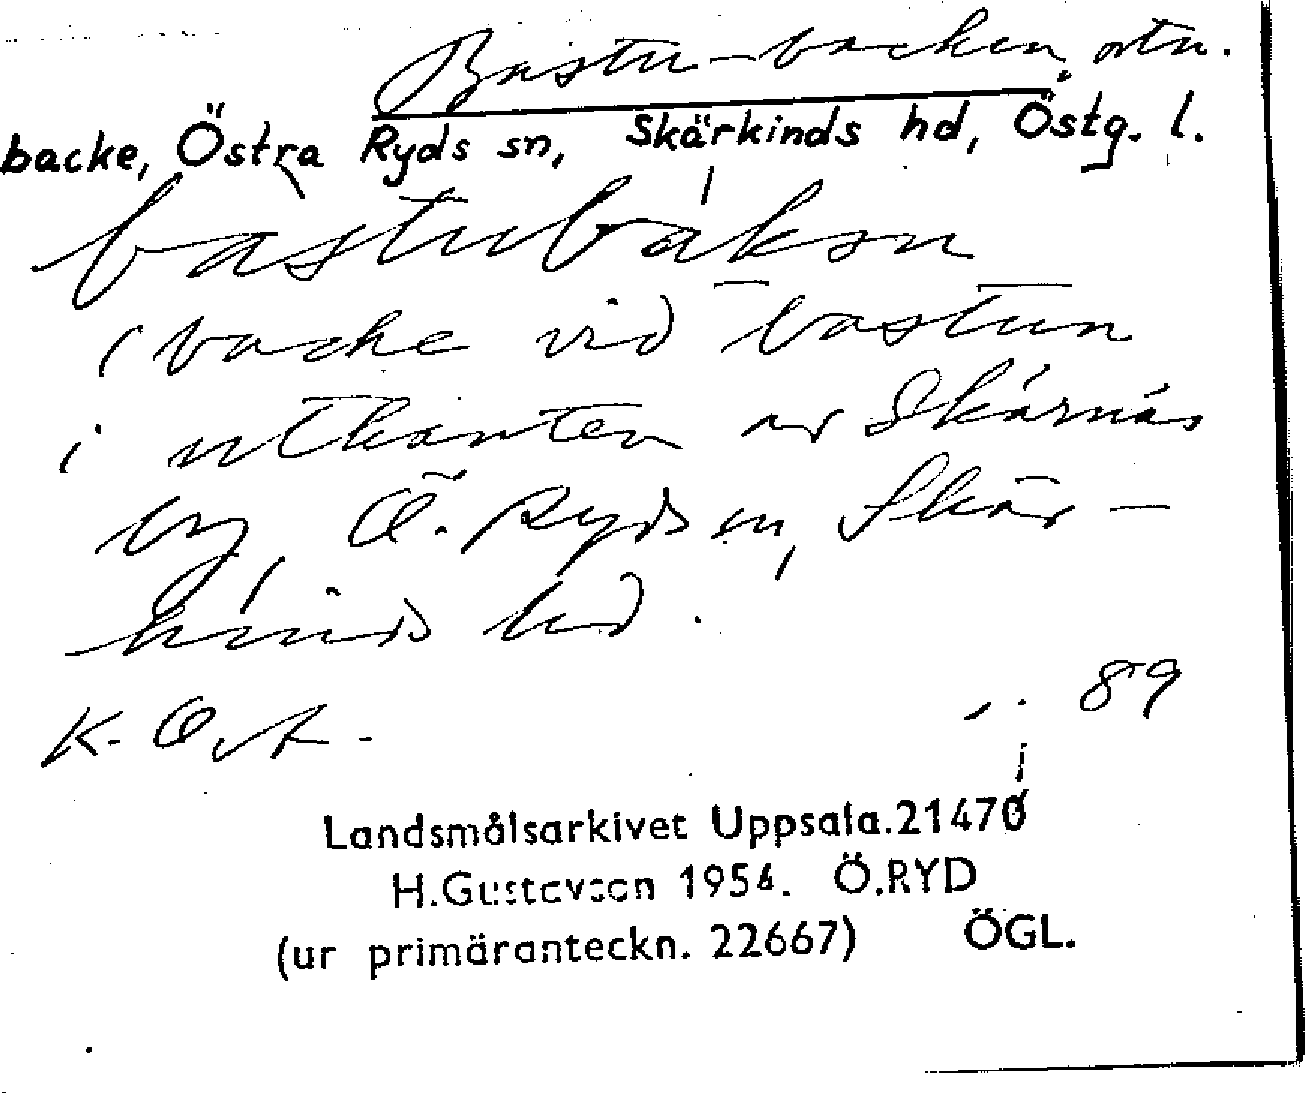 Bastu-backen, ortn.
backe, Östra Ryds sn, Skärkinds hd, Östg. l.
bastubakən
i backe vid bastun
i utkanten av Skärnäs
by, Ö. Ryds sn, Skär-
kinds hd.
K. Ort. 89
Landsmålsarkivet Uppsala. 21470
H. Gustavson 1954. Ö.RYD
(ur primäranteckn. 22667) ÖGL.